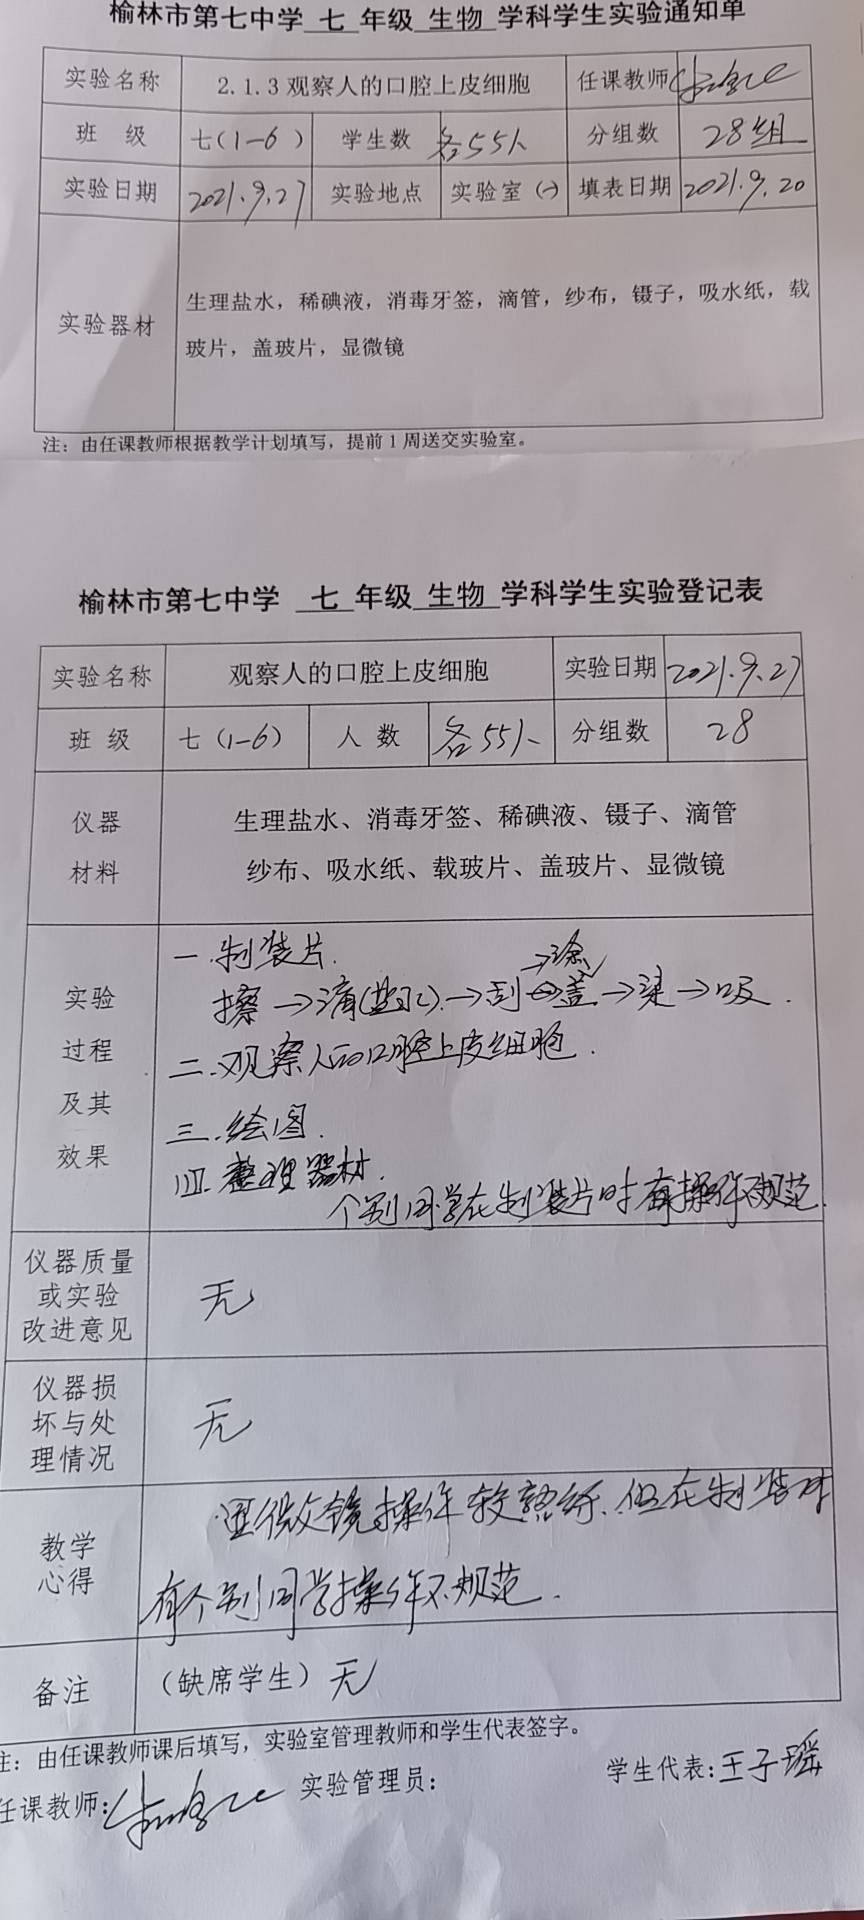 榆林市第七中学 七 年级 生物 学科学生实验通知单
实验名称 2.1.3观察人的口腔上皮细胞 任课教师
班 级 七(1-6) 学生数 各55人 分组数 28组
实验日期 2021.9.27 实验地点 实验室(一) 填表日期 2021.9.20
生理盐水，稀碘液，消毒牙签，滴管，纱布，镊子，吸水纸，载
实验器材
玻片，盖玻片，显微镜
注：由任课教师根据教学计划填写，提前1周送交实验室。
榆林市第七中学 七 年级 生物 学科学生实验登记表
实验名称 观察人的口腔上皮细胞 实验日期 2021.9.27
班 级 七(1-6) 人 数 各55人 分组数 28
仪器 生理盐水、消毒牙签、稀碘液、镊子、滴管
材料 纱布、吸水纸、载玻片、盖玻片、显微镜
实验
过程
及其
效果
一.制装片.
→涂
擦→滴(盐水)→刮→盖→染→吸.
二.观察人的口腔上皮细胞.
三.绘图.
四.整理器材.
个别同学在制装片时有操作不规范.
仪器质量
或实验
改进意见
无
仪器损
坏与处
理情况
无
教学
心得
显微镜操作较熟练.但在制装片时
有个别同学操作不规范.
备注 (缺席学生) 无
注：由任课教师课后填写，实验室管理教师和学生代表签字。
任课教师: 实验管理员: 学生代表:王子瑶